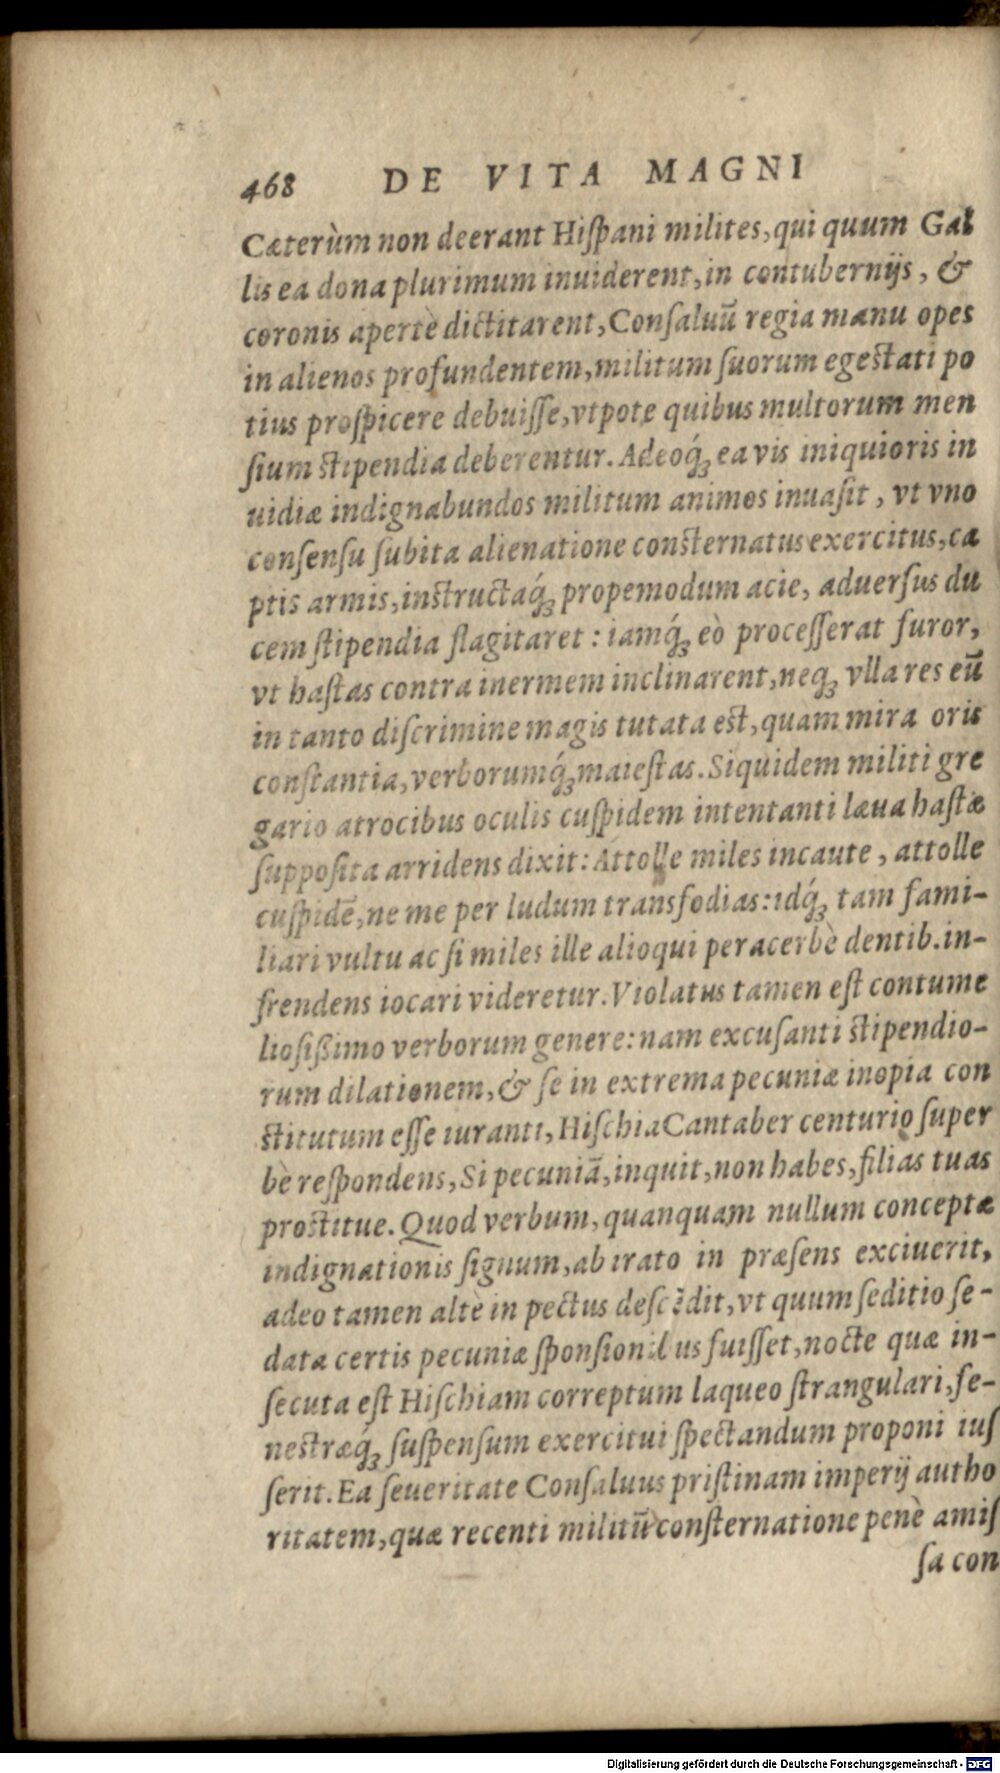 468 DE VITA MAGNI
Cæterùm non deerant Hiſpani milites, qui quum Gal
lis ea dona plurimum inuiderent, in contubernijs, &
coronis apertè dictitarent, Conſaluũ regia manu opes
in alienos profundentem, militum ſuorum egeſtati po
tius proſpicere debuiſſe, vtpote quibus multorum men
ſium ſtipendia deberentur. Adeoq́ꝫ ea vis iniquioris in
uidiæ indignabundos militum animos inuaſit, vt vno
conſenſu ſubita alienatione conſternatus exercitus, ca
ptis armis, inſtructaq́ꝫ propemodum acie, aduerſus du
cem ſtipendia flagitaret: iamq́ꝫ eò proceſſerat furor,
vt haſtas contra inermem inclinarent, neqꝫ vlla res eũ
in tanto diſcrimine magis tutata eſt, quam mira oris
conſtantia, verborumq́ꝫ maieſtas. Siquidem militi gre
gario atrocibus oculis cuſpidem intentanti læua haſtæ
ſuppoſita arridens dixit: Attolle miles incaute, attolle
cuſpidẽ, ne me per ludum transfodias: idq́ꝫ tam fami-
liari vultu ac ſi miles ille alioqui peracerbè dentib. in-
frendens iocari videretur. Violatus tamen eſt contume
lioſißimo verborum genere: nam excuſanti ſtipendio-
rum dilationem, & ſe in extrema pecuniæ inopia con
ſtitutum eſſe iuranti, Hiſchia Cantaber centurio ſuper
bè reſpondens, Si pecuniã, inquit, non habes, filias tuas
proſtitue. Quod verbum, quanquam nullum conceptæ
indignationis ſignum, ab irato in præſens exciuerit,
adeo tamen altè in pectus deſcẽdit, vt quum ſeditio ſe-
data certis pecuniæ ſponſionibus fuiſſet, nocte quæ in-
ſecuta eſt Hiſchiam correptum laqueo ſtrangulari, fe-
neſtræq́ꝫ ſuſpenſum exercitui ſpectandum proponi iuſ
ſerit. Ea ſeueritate Conſaluus priſtinam imperij autho
ritatem, quæ recenti militũ conſternatione penè amiſ
ſa con
Digitalisierung gefördert durch die Deutsche Forschungsgemeinschaft - DFG